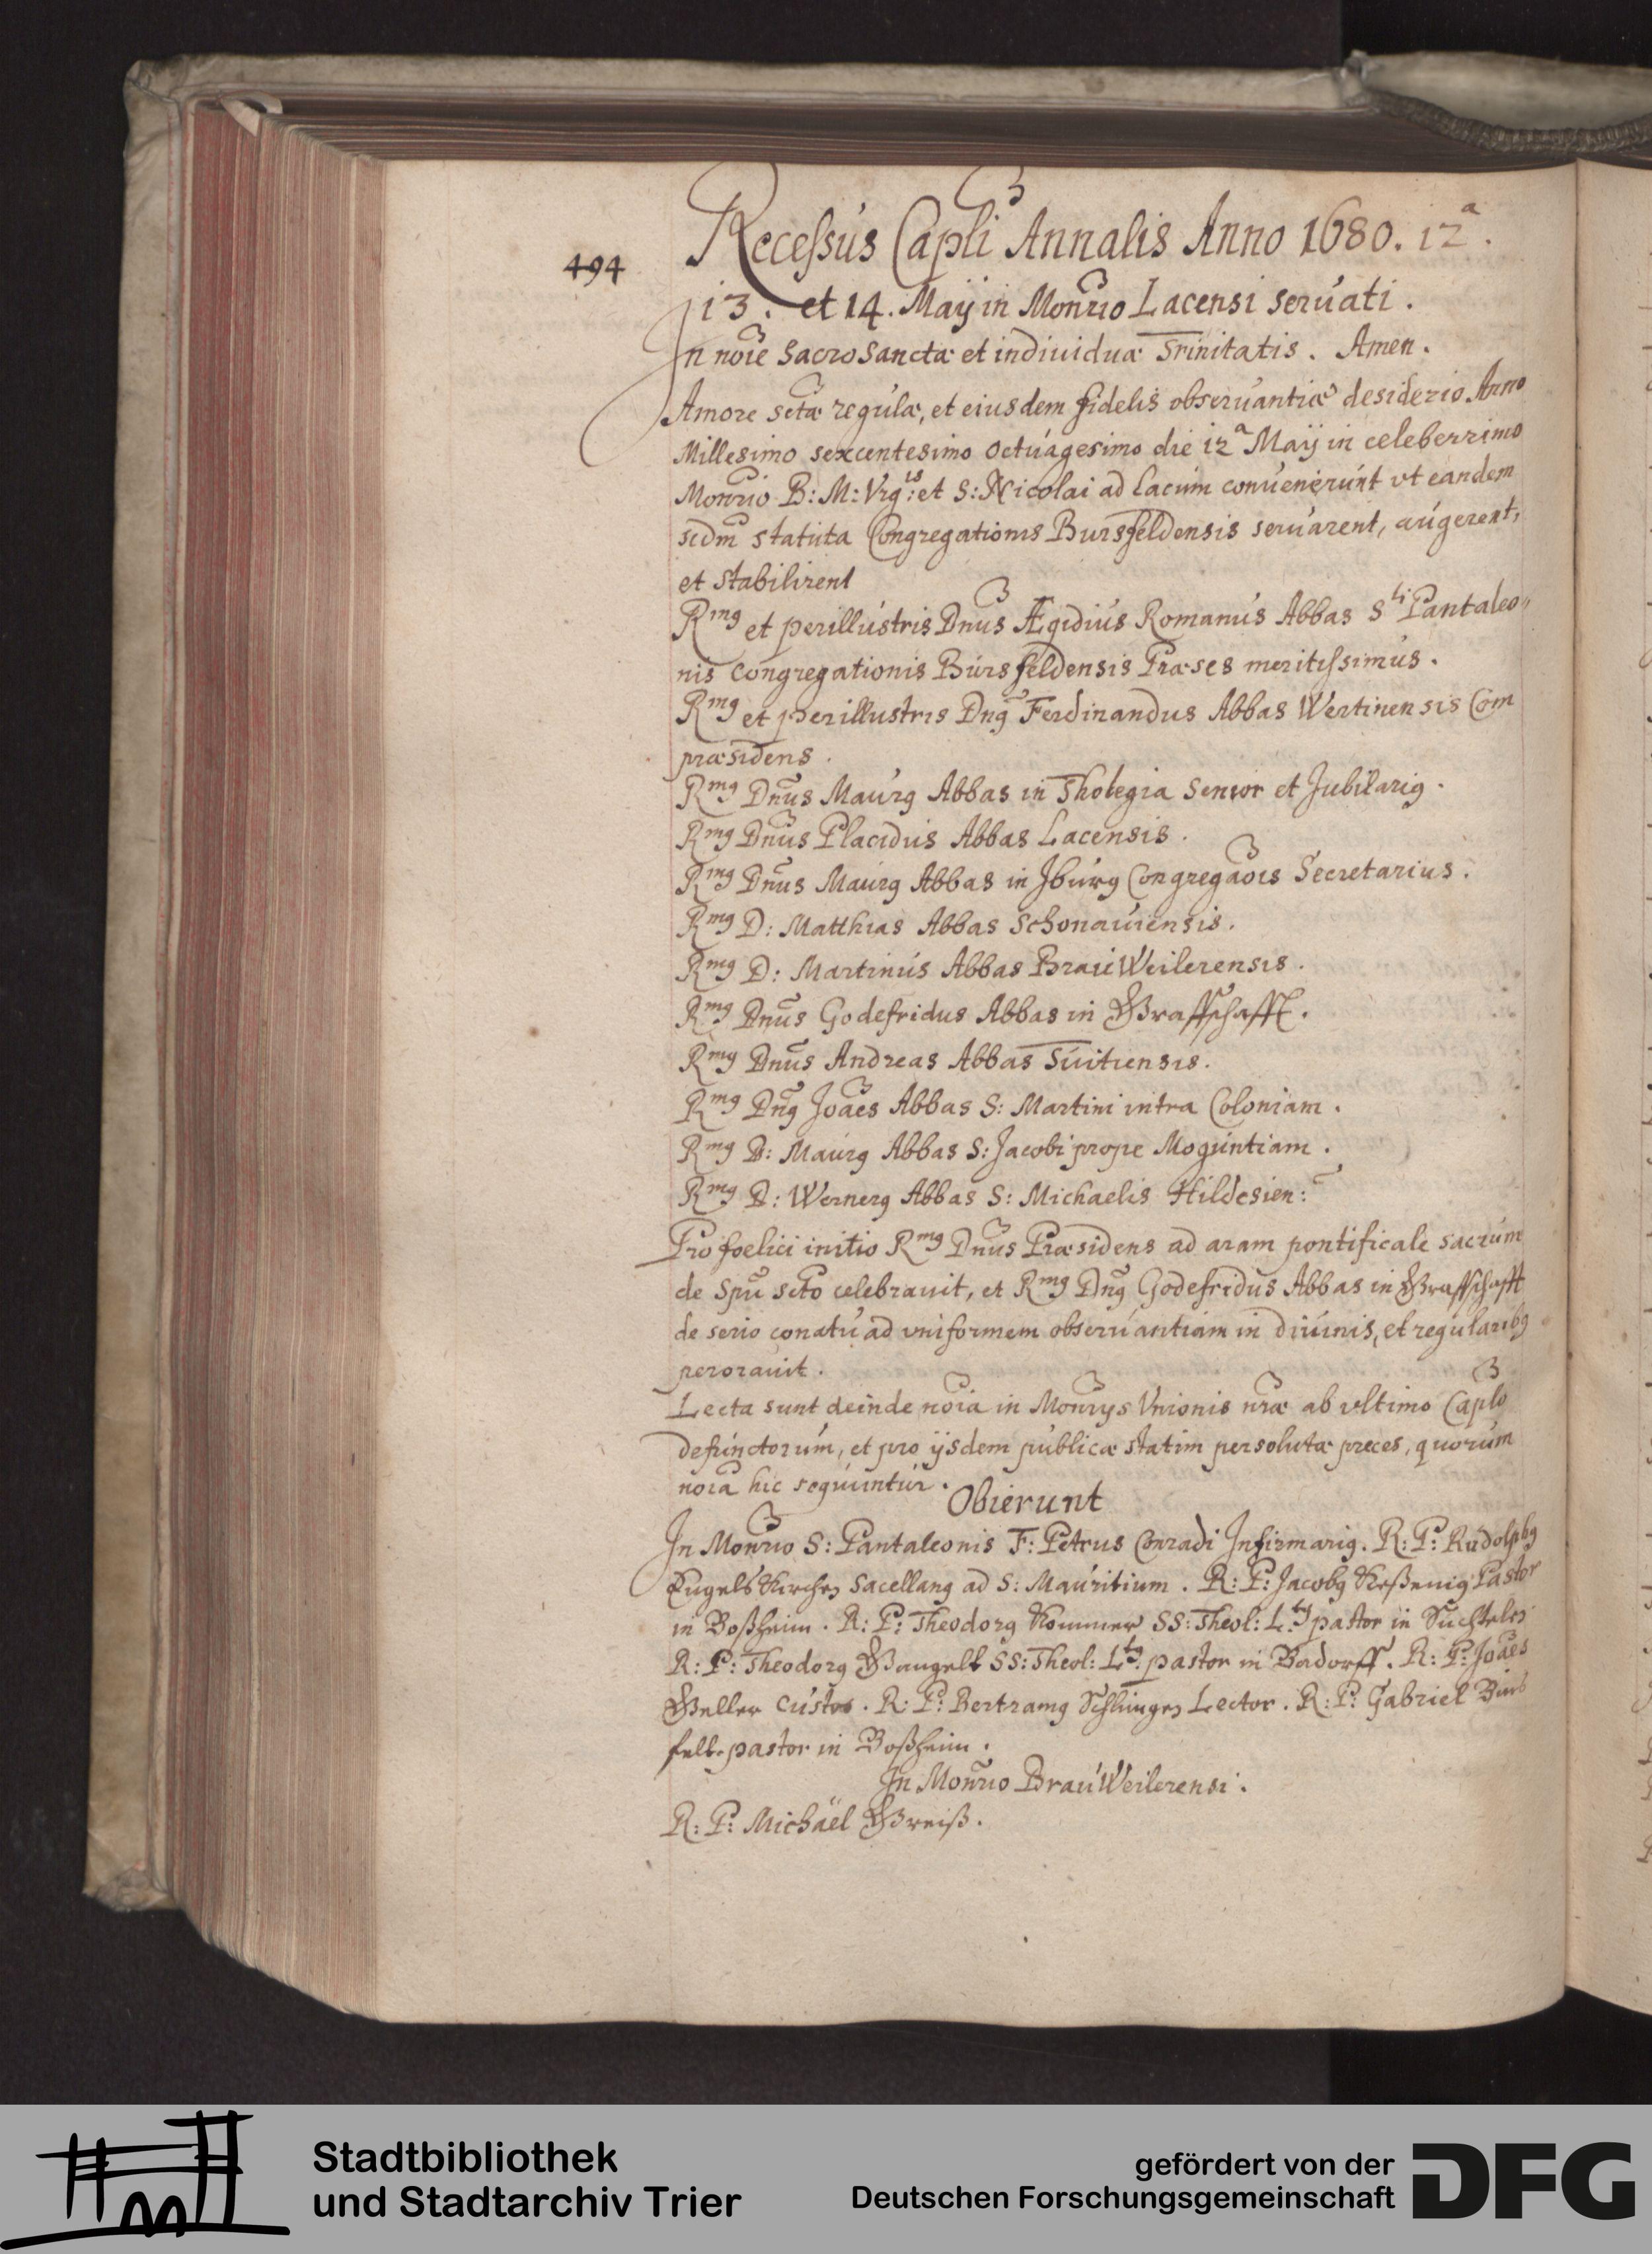 494
Recessus Capli Annalis Anno 1680. 12ª.
13. et 14. Maÿ in Monrio Lacensi servati.
In noie Sacrosanctæ et individuæ Trinitatis. Amen.
Amore sctæ regulæ, et eiusdem fidelis observantiæ desiderio Anno
Millesimo sexcentesimo octuagesimo die 12ª Maÿ in celeberrimo
Monrio B: M: Vrgis: et S: Nicolai ad Lacum convenerunt vt eandem
scdm statuta Congregationis Bursfeldensis servarent, augerent,
et stabilirent
Rmg et perillustris Dnus Ægidius Romanus Abbas Sti Pantaleo„
nis Congregationis Bursfeldensis Præses meritissimus.
Rmg et perillustris Dng Ferdinandus Abbas Wertinensis Com
præsidens.
Rmg Dnus Maurg Abbas in Tholegia Senior et Jubilarig.
Rmg Dnus Placidus Abbas Lacensis.
Rmg Dnus Maurg Abbas in Jburg Congregaois Secretarius.
Rmg D: Matthias Abbas Schonauiensis.
Rmg D: Martinus Abbas BrauWeilerensis.
Rmg Dnus Godefridus Abbas in Graffschafft.
Rmg Dnus Andreas Abbas Tuitiensis.
Rmg Dng Joaes Abbas S: Martini intra Coloniam.
Rmg D: Maurg Abbas S: Jacobi prope Moguntiam.
Rmg D: Wernerg Abbas S: Michaelis Hildesien:
Pro foelici initio Rmg Dnus Præsidens ad aram pontificale sacrum
de Spu scto celebrauit, et Rmg Dng Godefridus Abbas in Graffschafft
de serio conatu ad vniformem observantiam in diuinis, et regularibg
perorauit.
Lecta sunt deinde noia in Monrÿs Vnionis nræ ab vltimo Caplo
defunctorum, et pro ÿsdem publicæ statim persolutæ preces, quorum
noia hic sequuntur.
Obierunt
In Monrio S: Pantaleonis F: Petrus Conradi Infirmarig. R: P: Rudolphg
Engelskirchen Sacellang ad S: Mauritium. R: P: Jacobg Keßenig Pastor
in Boßheim. R: P: Theodorg Kommer SS: Theol: Ltg pastor in Suchtelen
R: P: Theodorg Wangelt SS: Theol: Ltg pastor in Badorff. R: P: Joaes
Geller Custos. R: P: Bertramg Schlingen Lector. R: P: Gabriel Birb
felt pastor in Boßheim.
In Monrio BrauWeilerensi.
R: P: Michäel Greiß.
Stadtbibliothek
und Stadtarchiv Trier
gefördert von der
Deutschen Forschungsgemeinschaft
DFG